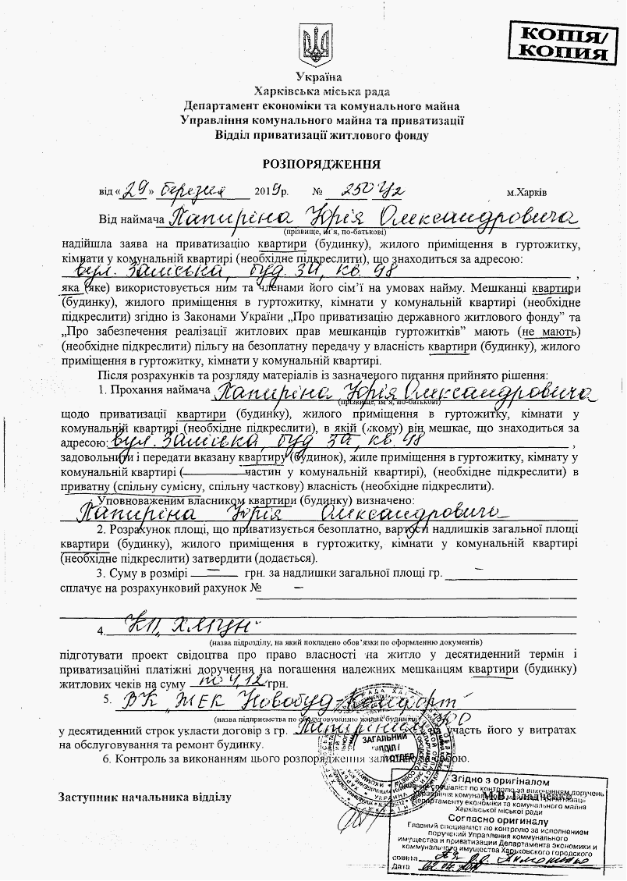 КОПІЯ/
КОПИЯ
Україна
Харківська міська рада
Департамент економіки та комунального майна
Управління комунального майна та приватизації
Відділ приватизації житлового фонду
РОЗПОРЯДЖЕННЯ
від « 29 » березня 2019р. № 2504/2 м.Харків
Від наймача Папиріна Юрія Олександровича
(прізвище, ім'я, по-батькові)
надійшла заява на приватизацію квартири (будинку), жилого приміщення в гуртожитку,
кімнати у комунальній квартирі (необхідне підкреслити), що знаходиться за адресою:
вул. Заліська, буд. 3А, кв. 48 ,
яка (яке) використовується ним та членами його сім'ї на умовах найму. Мешканці квартири
(будинку), жилого приміщення в гуртожитку, кімнати у комунальній квартирі (необхідне
підкреслити) згідно із Законами України „Про приватизацію державного житлового фонду" та
„Про забезпечення реалізації житлових прав мешканців гуртожитків" мають (не мають)
(необхідне підкреслити) пільгу на безоплатну передачу у власність квартири (будинку), жилого
приміщення в гуртожитку, кімнати у комунальній квартирі.
Після розрахунків та розгляду матеріалів із зазначеного питання прийнято рішення:
1. Прохання наймача Папиріна Юрія Олександровича
(прізвище, ім'я, по-батькові)
щодо приватизації квартири (будинку), жилого приміщення в гуртожитку, кімнати у
комунальній квартирі (необхідне підкреслити), в якій (якому) він мешкає, що знаходиться за
адресою: вул. Заліська, буд 3А, кв. 48 ,
задовольнити і передати вказану квартиру (будинок), жиле приміщення в гуртожитку, кімнату у
комунальній квартирі ( частин у комунальній квартирі), (необхідне підкреслити) в
приватну (спільну сумісну, спільну часткову) власність (необхідне підкреслити).
Уповноваженим власником квартири (будинку) визначено:
Папиріна Юрія Олександровича
2. Розрахунок площі, що приватизується безоплатно, вартості надлишків загальної площі
квартири (будинку), жилого приміщення в гуртожитку, кімнати у комунальній квартирі
(необхідне підкреслити) затвердити (додається).
3. Суму в розмірі — грн. за надлишки загальної площі гр. —
сплачує на розрахунковий рахунок № —
4.
(назва підрозділу, на який покладено обов'язки по оформленню документів)
підготувати проект свідоцтва про право власності на житло у десятиденний термін і
приватизаційні платіжні доручення на погашення належних мешканцям квартири (будинку)
житлових чеків на суму по 4,12 грн.
5. ВК „ЖЕК Новобуд-Комфорт"
(назва підприємства по обслуговуванню житлового будинку)
у десятиденний строк укласти договір з гр. Папиріним Ю.О участь його у витратах
на обслуговування та ремонт будинку.
6. Контроль за виконанням цього розпорядження залишаю за собою.
ЗАГАЛЬНИЙ
ВІДДІЛ
Заступник начальника відділу М.В. Гладченко
Згідно з оригіналом
Головний спеціаліст по контролю за виконанням доручень
Управління комунального майна та приватизації
Департаменту економіки та комунального майна
Харківської міської ради
Согласно оригиналу
Главный специалист по контролю за исполнением
поручений Управления коммунального
имущества и приватизации Департамента экономики и
коммунального имущества Харьковского городского
совета
Дата